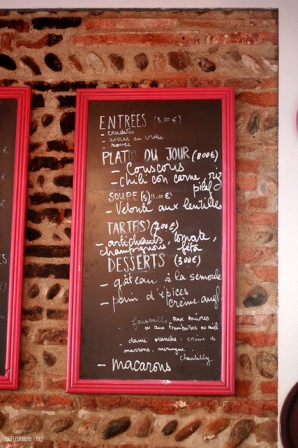 ENTREES (3.00€)
- crudités
PLAT DU JOUR (8.00€)
- Couscous
- Chili con carne, riz
pilaf
SOUPE
- Velouté aux lentilles
TARTES
- artichauts, tomate,
champignons feta
DESSERTS (3.00€)
- gâteau à la semoule
- pain d'épices
crème angl.
aux mûres
ou aux framboises ou miel
dame blanche: crème de
marrons, meringue,
chantilly
- macarons